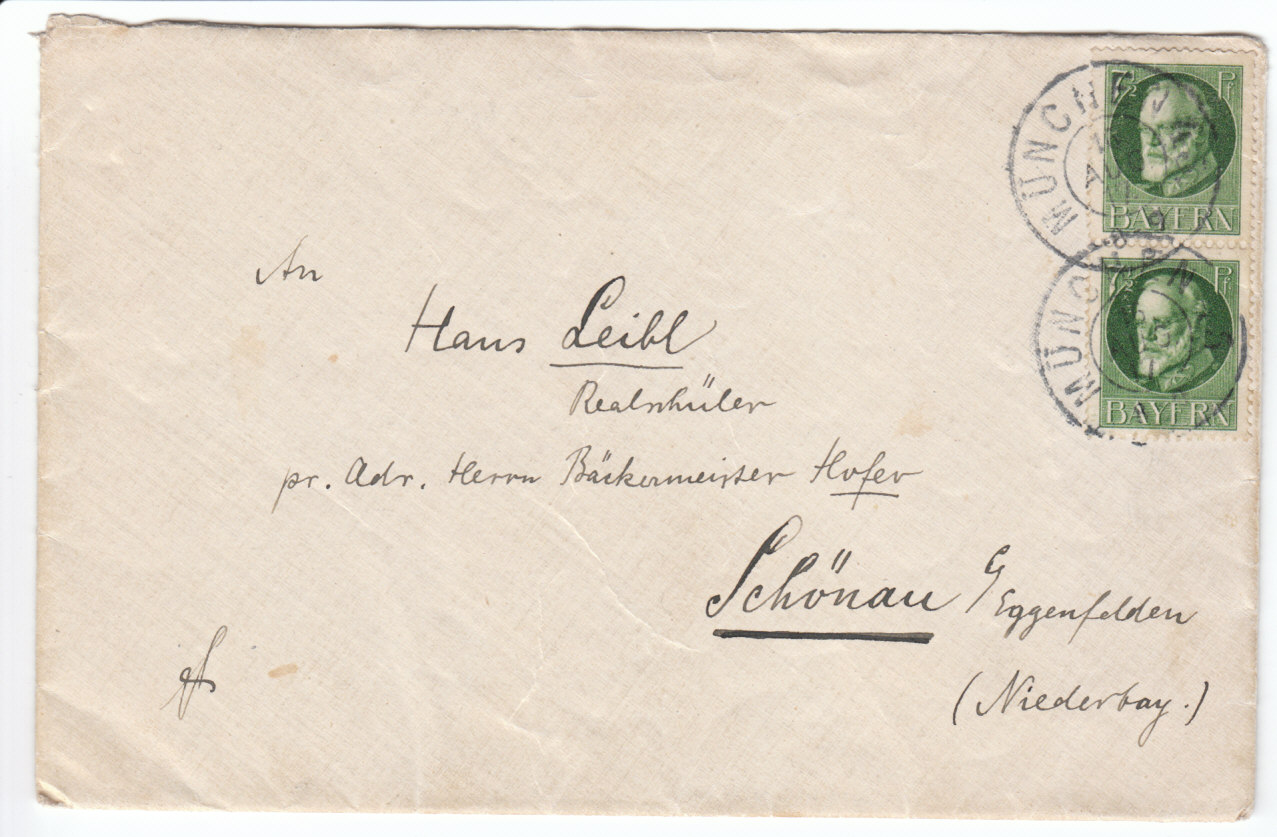 7½ Pf
MÜNCHEN
AUG
BAYERN
7½ Pf
MÜNCHEN
BAYERN
An
Hans Leibl
Realschüler
pr. Adr. Herrn Bäckermeister Hofer
Schönau
Eggenfelden
(Niederbay.)